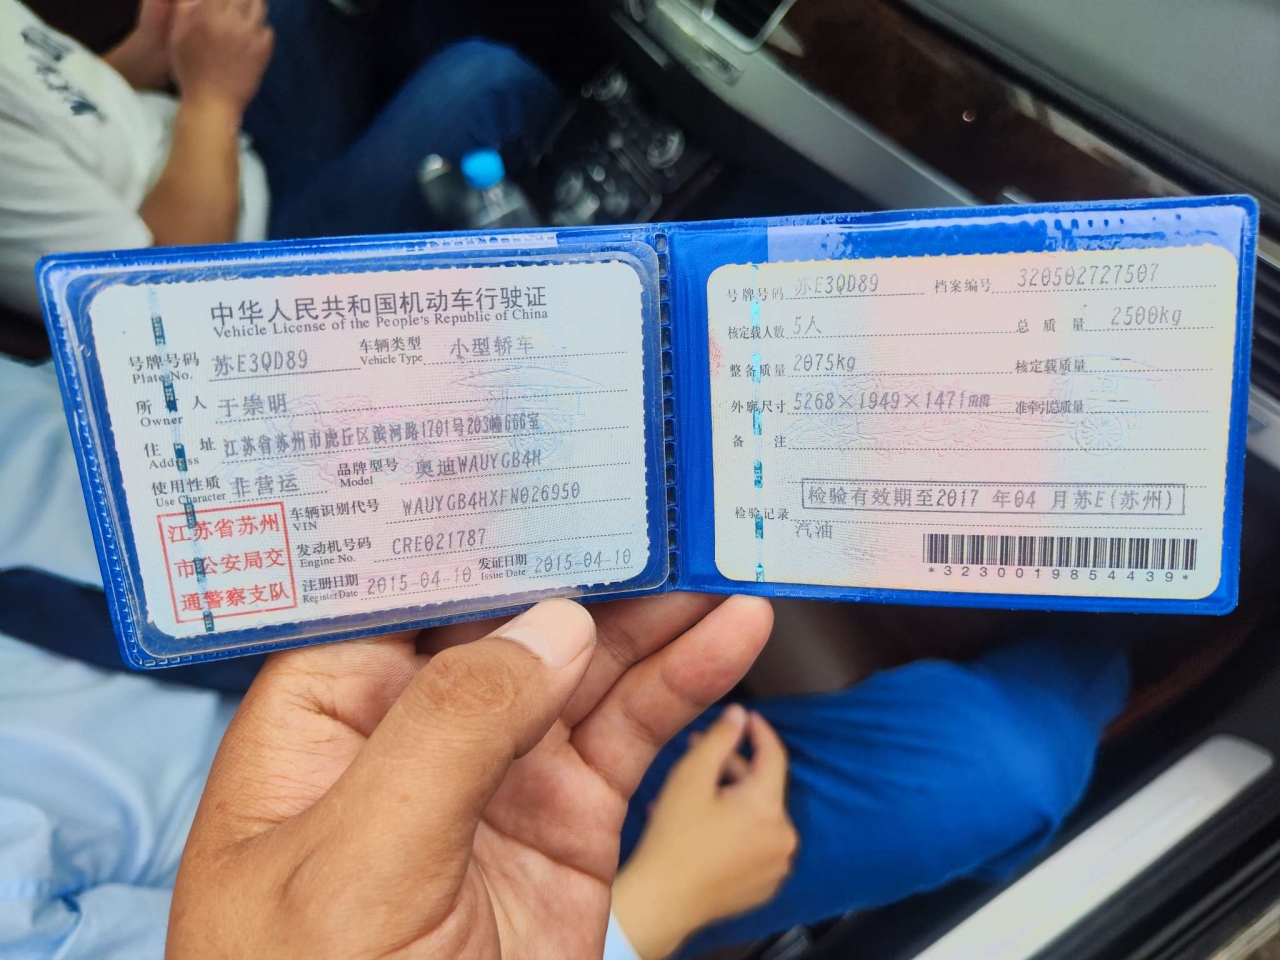 中华人民共和国机动车行驶证
Vehicle License of the People's Republic of China
号牌号码 Plate No. 苏E3QD89 车辆类型 Vehicle Type 小型轿车
所有人 Owner 于崇明
住址 Address 江苏省苏州市虎丘区滨河路1701号203幢666室
使用性质 Use Character 非营运 品牌型号 Model 奥迪WAUYGB4H
车辆识别代号 VIN WAUYGB4HXFN026950
发动机号码 Engine No. CRE021787
注册日期 Register Date 2015-04-10 发证日期 Issue Date 2015-04-10
江苏省苏州
市公安局交
通警察支队
号牌号码 苏E3QD89 档案编号 320502727507
核定载人数 5人 总质量 2500kg
整备质量 2075kg 核定载质量
外廓尺寸 5268×1949×1471mm 准牵引总质量
备注
检验有效期至2017 年04 月苏E(苏州)
检验记录
汽油
*3230019854439*